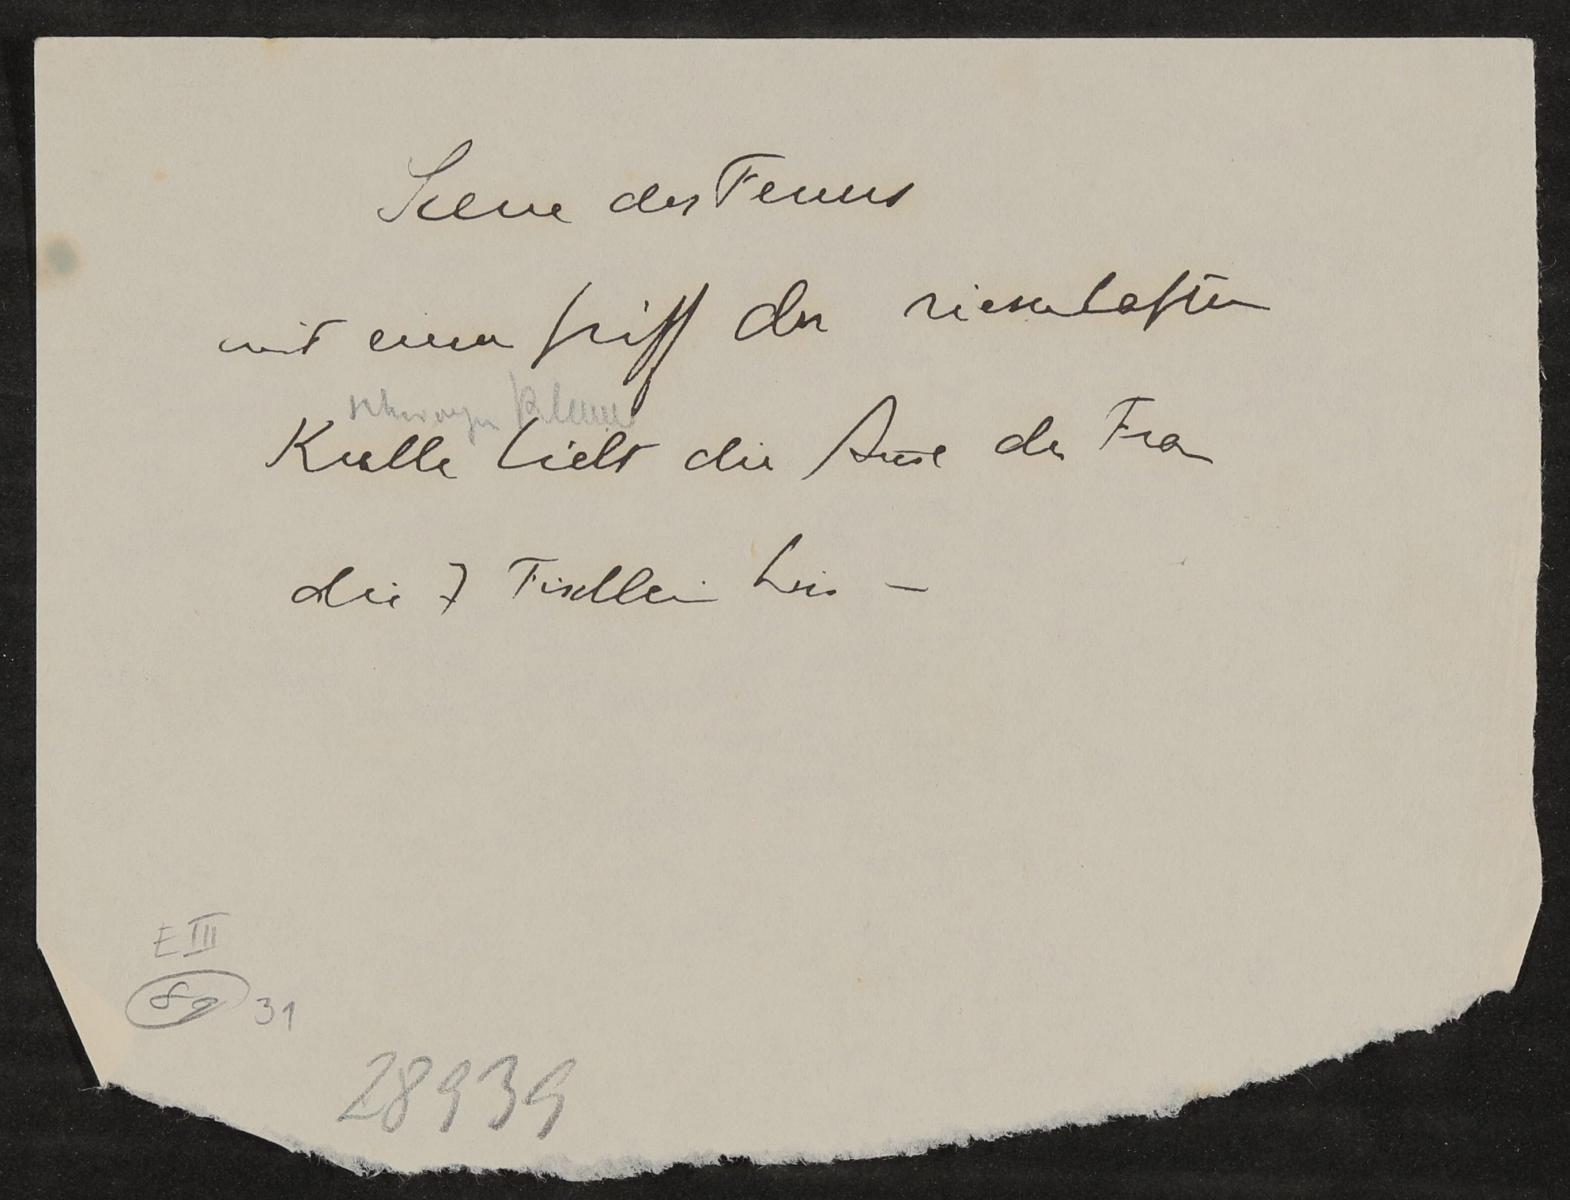 Scene des
mit einem Griff der riesenhaften
schwarzen Klaue
Kralle hielt die Amme der Frau
die 7 Fischlein hin –
E III
89 31
28939